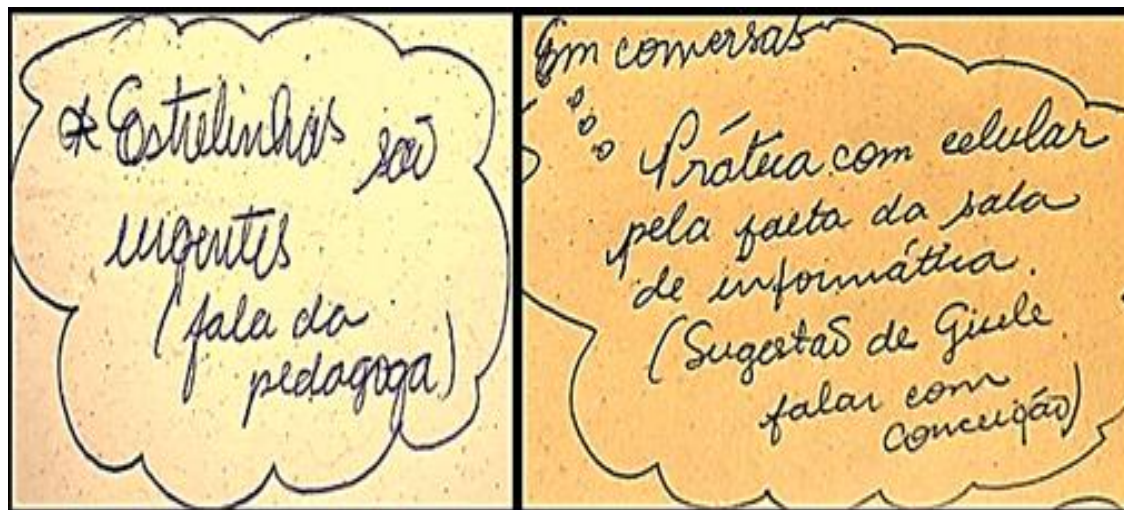 * Estrelinhas são
urgentes
(fala da
pedagoga)
Em conversas
Prática com celular
pela falta da sala
de informática.
(Sugestão de Gisele
falar com
Conceição)